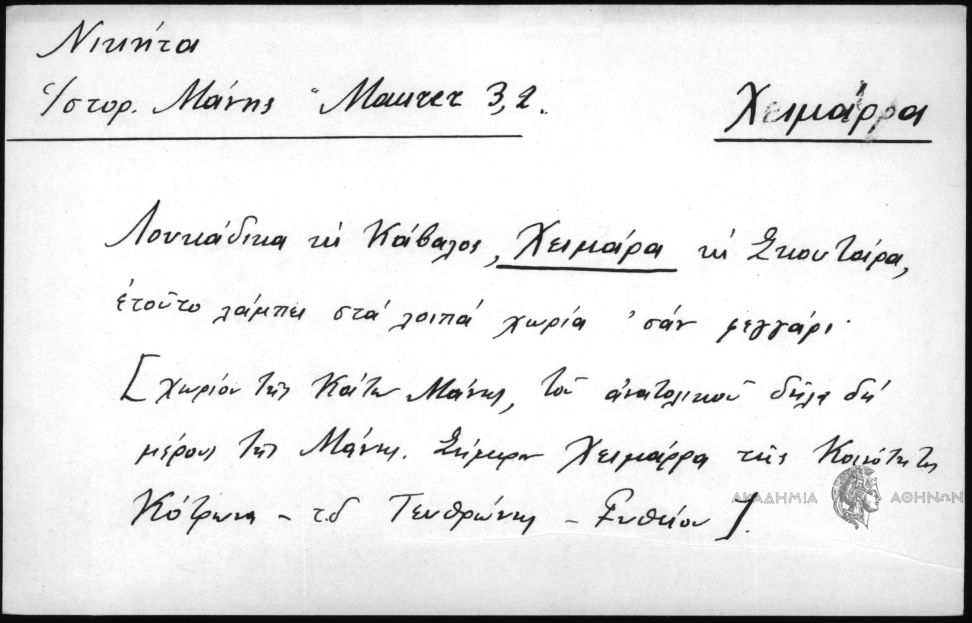 Νικήτα
Ἱστορ. Μάνης " Maurer 3,2.
Χειμάρρα
Λουκάδικα κὶ Κάβαλος, Χειμάρα κὶ Σκουταίρα,
ἐτοῦτο λάμπει στὰ λοιπὰ χωρία 'σὰν φεγγάρι.
[χωρίον τῆς Κάτω Μάνης, τοῦ ἀνατολικοῦ δηλαδὴ
μέρους τῆς Μάνης. Σήμερον Χειμάρρα τῆς Κοινότητος
Κότρωνα - τ.δ Τευθρώνης - Γυθείου].
ΑΚΑΔΗΜΙΑ ΑΘΗΝΩΝ